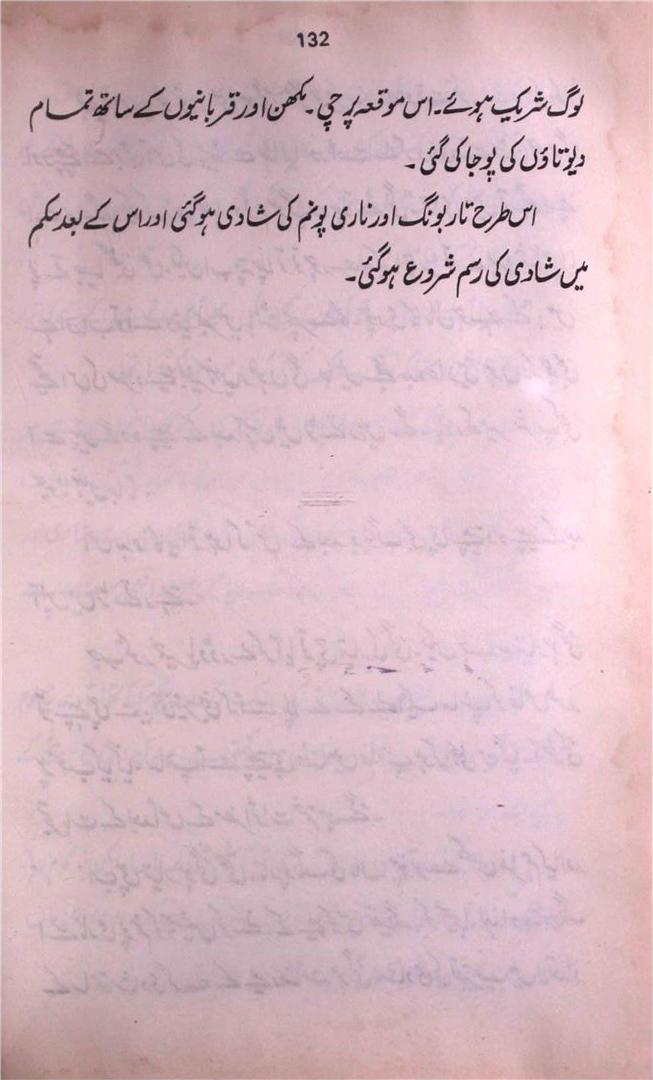 132
لوگ شریک ہوئے۔ اس موقعہ پر چی۔ مکھن اور قربانیوں کے ساتھ تمام
دیوتاؤں کی پوجا کی گئی۔
اس طرح تاربونگ اور ناری پونم کی شادی ہوگئی اور اس کے بعد سکم
میں شادی کی رسم شروع ہوگئی۔